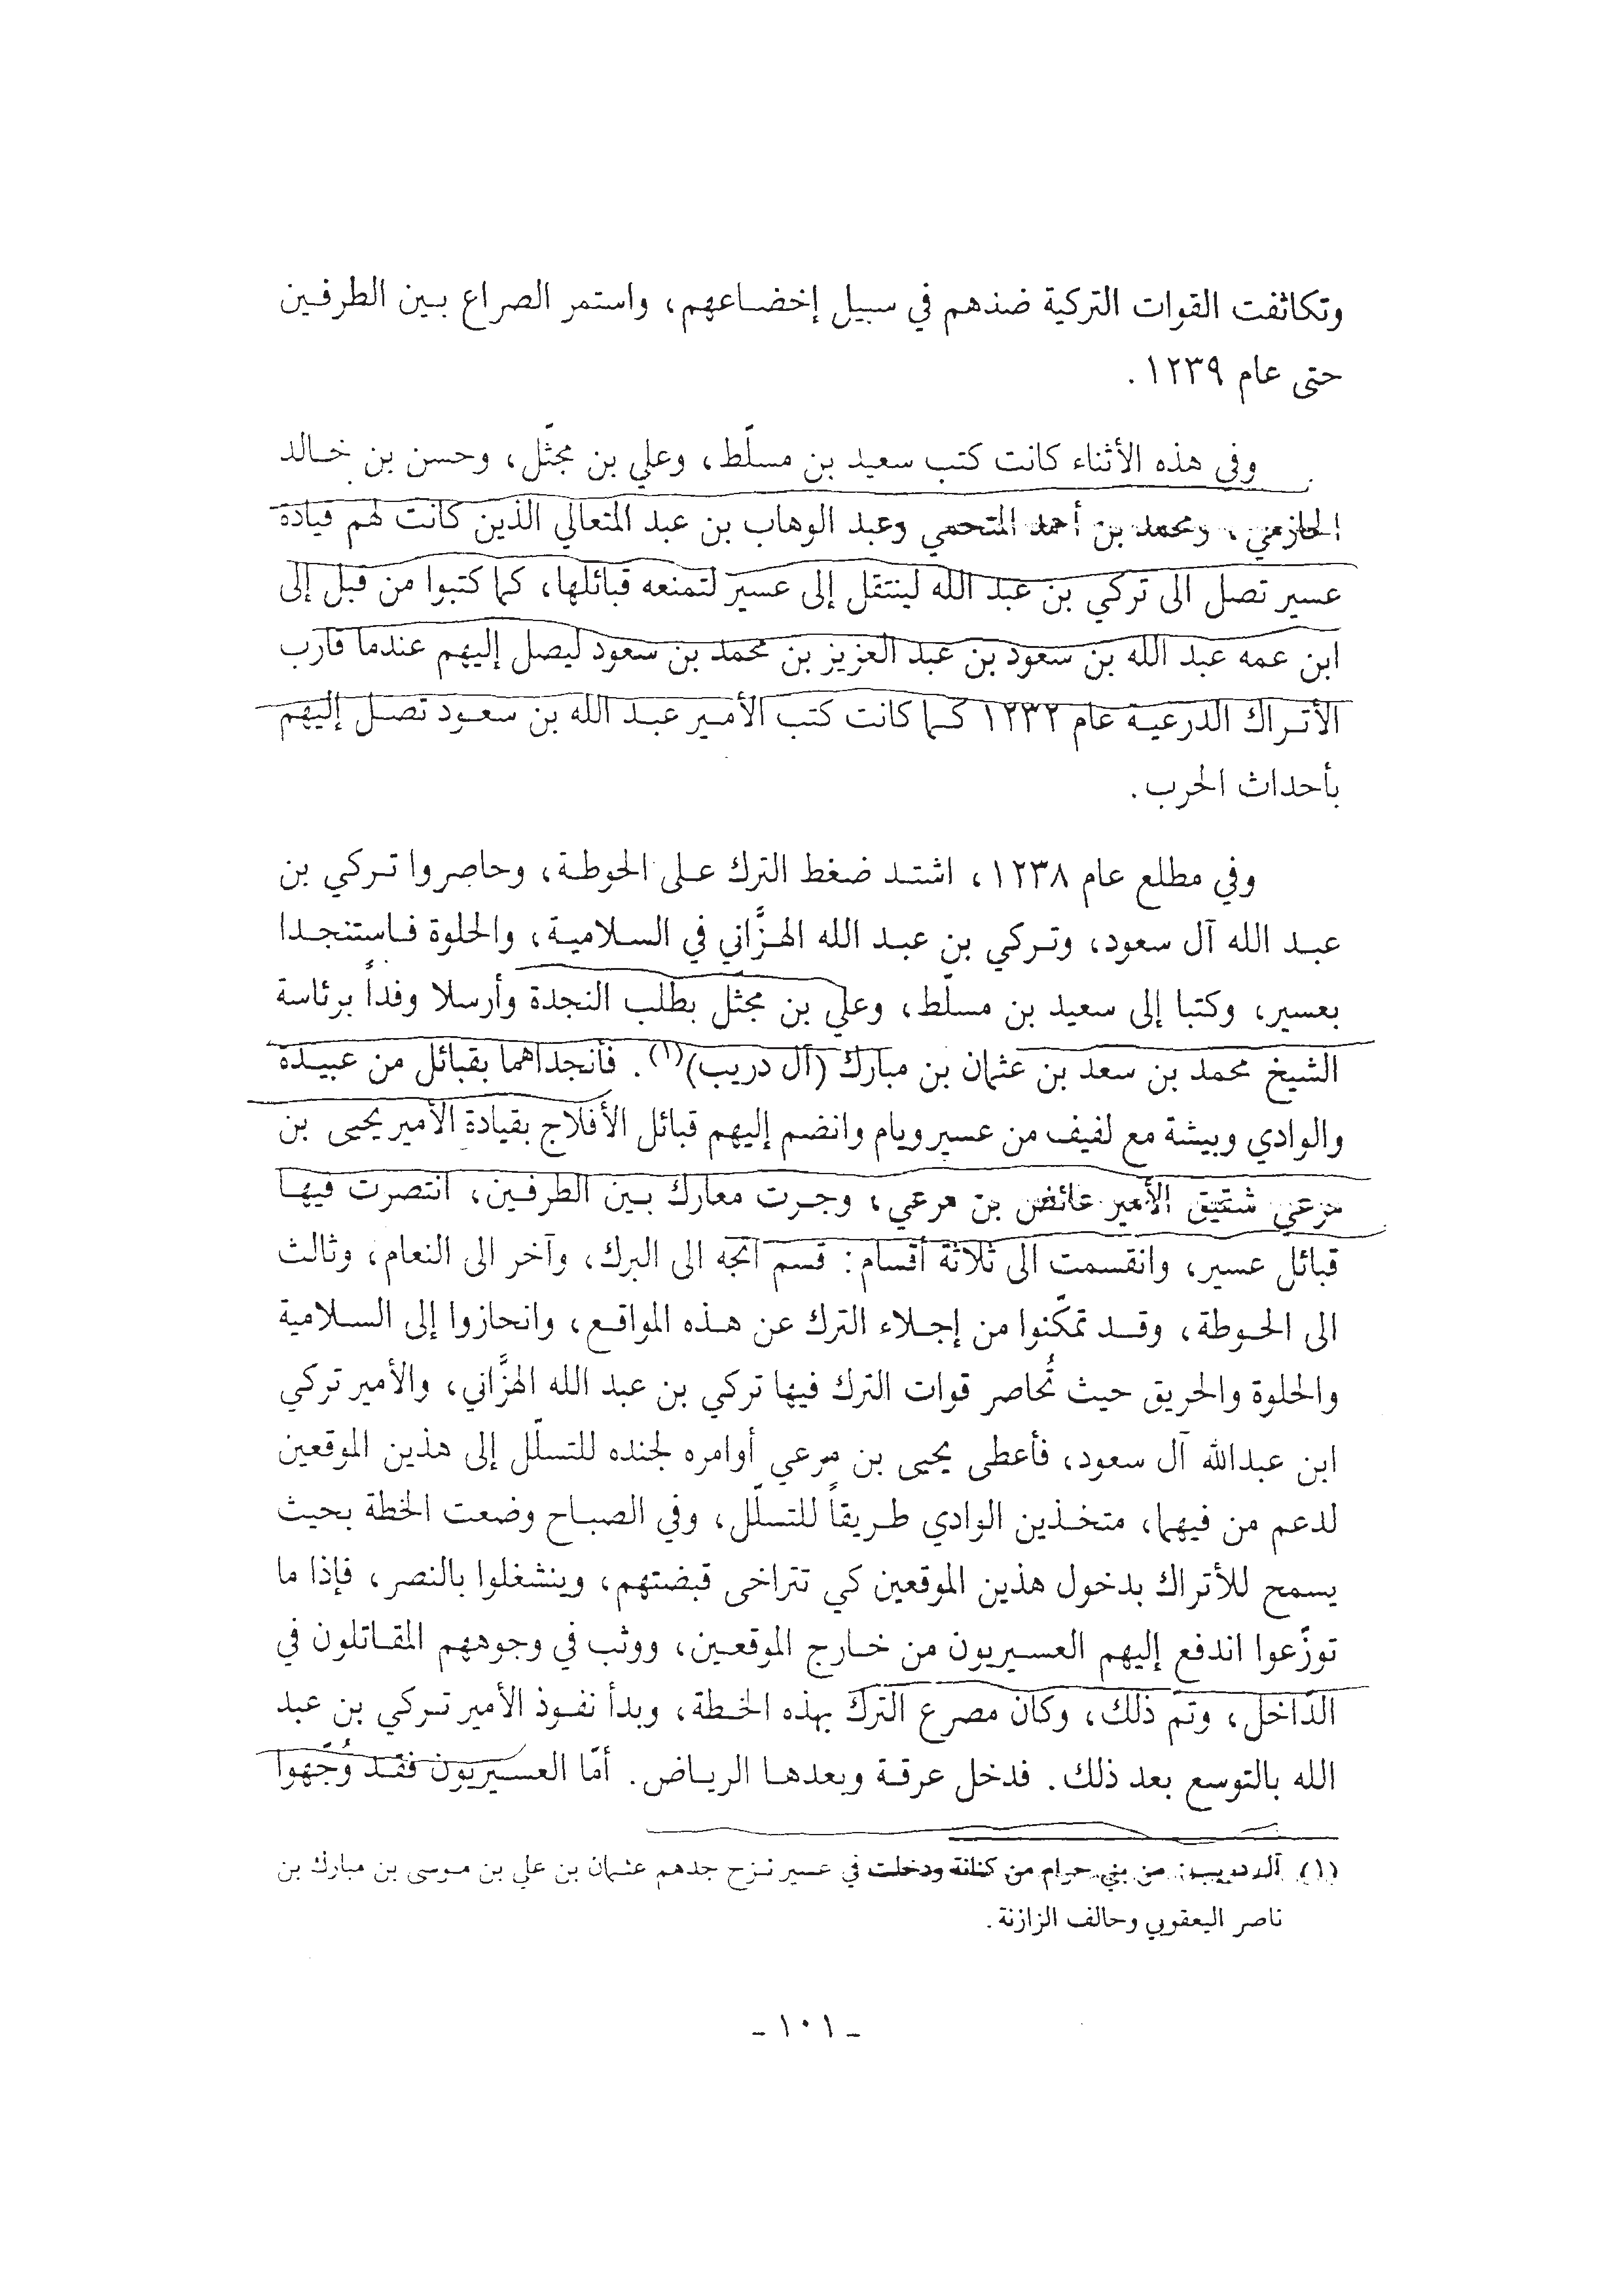 وتكاثفت القوات التركية ضدهم في سبيل إخضاعهم، واستمر الصراع بين الطرفين
حتى عام ١٢٣٩.
وفي هذه الأثناء كانت كتب سعيد بن مسلّط، وعلي بن مجثّل، وحسن بن خالد
الحازمي، ومحمد بن أحمد المتحمي وعبد الوهاب بن عبد المتعالي الذين كانت لهم قيادة
عسير تصل الى تركي بن عبد الله لينتقل إلى عسير لتمنعه قبائلها، كما كتبوا من قبل إلى
ابن عمه عبد الله بن سعود بن عبد العزيز بن محمد بن سعود ليصل إليهم عندما قارب
الأتراك الدرعية عام ١٢٣٢ كما كانت كتب الأمير عبد الله بن سعود تصل إليهم
بأحداث الحرب.
وفي مطلع عام ١٢٣٨، اشتد ضغط الترك على الحوطة، وحاصروا تركي بن
عبد الله آل سعود، وتركي بن عبد الله الهزَّاني في السلامية، والحلوة فاستنجدا
بعسير، وكتبا إلى سعيد بن مسلّط، وعلي بن مجثّل بطلب النجدة وأرسلا وفداً برئاسة
الشيخ محمد بن سعد بن عثمان بن مبارك (آل دريب)(١). فأنجداهما بقبائل من عبيدة
والوادي وبيشة مع لفيف من عسير ويام وانضم إليهم قبائل الأفلاج بقيادة الأمير يحيى بن
مرعي شقيق الأمير عائض بن مرعي، وجرت معارك بين الطرفين، انتصرت فيها
قبائل عسير، وانقسمت الى ثلاثة أقسام: قسم اتجه الى البرك، وآخر الى النعام، وثالث
الى الحوطة، وقد تمكّنوا من إجلاء الترك عن هذه المواقع، وانحازوا إلى السلامية
والحلوة والحريق حيث تُحاصر قوات الترك فيها تركي بن عبد الله الهزَّاني، والأمير تركي
ابن عبدالله آل سعود، فأعطى يحيى بن مرعي أوامره لجنده للتسلّل إلى هذين الموقعين
لدعم من فيهما، متخذين الوادي طريقاً للتسلّل، وفي الصباح وضعت الخطة بحيث
يسمح للأتراك بدخول هذين الموقعين كي تتراخى قبضتهم، وينشغلوا بالنصر، فإذا ما
توزّعوا اندفع إليهم العسيريون من خارج الموقعين، ووثب في وجوههم المقاتلون في
الدّاخل، وتمّ ذلك، وكان مصرع الترك بهذه الخطة، وبدأ نفوذ الأمير تركي بن عبد
الله بالتوسع بعد ذلك. فدخل عرقة وبعدها الرياض. أمّا العسيريون فقد وُجّهوا
(١) آل دريب: من بني حرام من كنانة ودخلت في عسير نزح جدهم عثمان بن علي بن موسى بن مبارك بن
ناصر اليعقوبي وحالف الزازنة.
- ١٠١ -